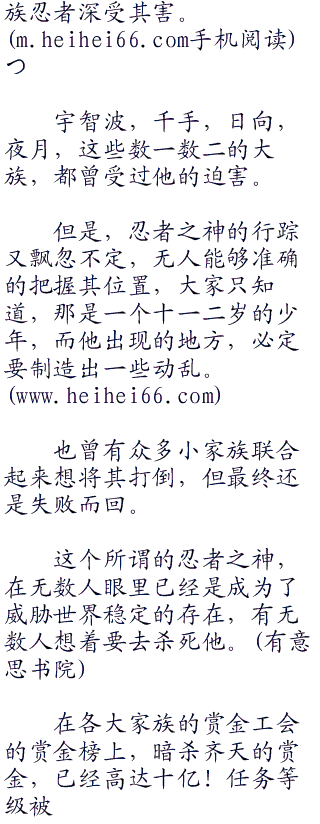 族忍者深受其害。
(m.heihei66.com手机阅读)
つ
宇智波，千手，日向，
夜月，这些数一数二的大
族，都曾受过他的迫害。
但是，忍者之神的行踪
又飘忽不定，无人能够准确
的把握其位置，大家只知
道，那是一个十一二岁的少
年，而他出现的地方，必定
要制造出一些动乱。
(www.heihei66.com)
也曾有众多小家族联合
起来想将其打倒，但最终还
是失败而回。
这个所谓的忍者之神，
在无数人眼里已经是成为了
威胁世界稳定的存在，有无
数人想着要去杀死他。(有意
思书院)
在各大家族的赏金工会
的赏金榜上，暗杀齐天的赏
金，已经高达十亿！任务等
级被